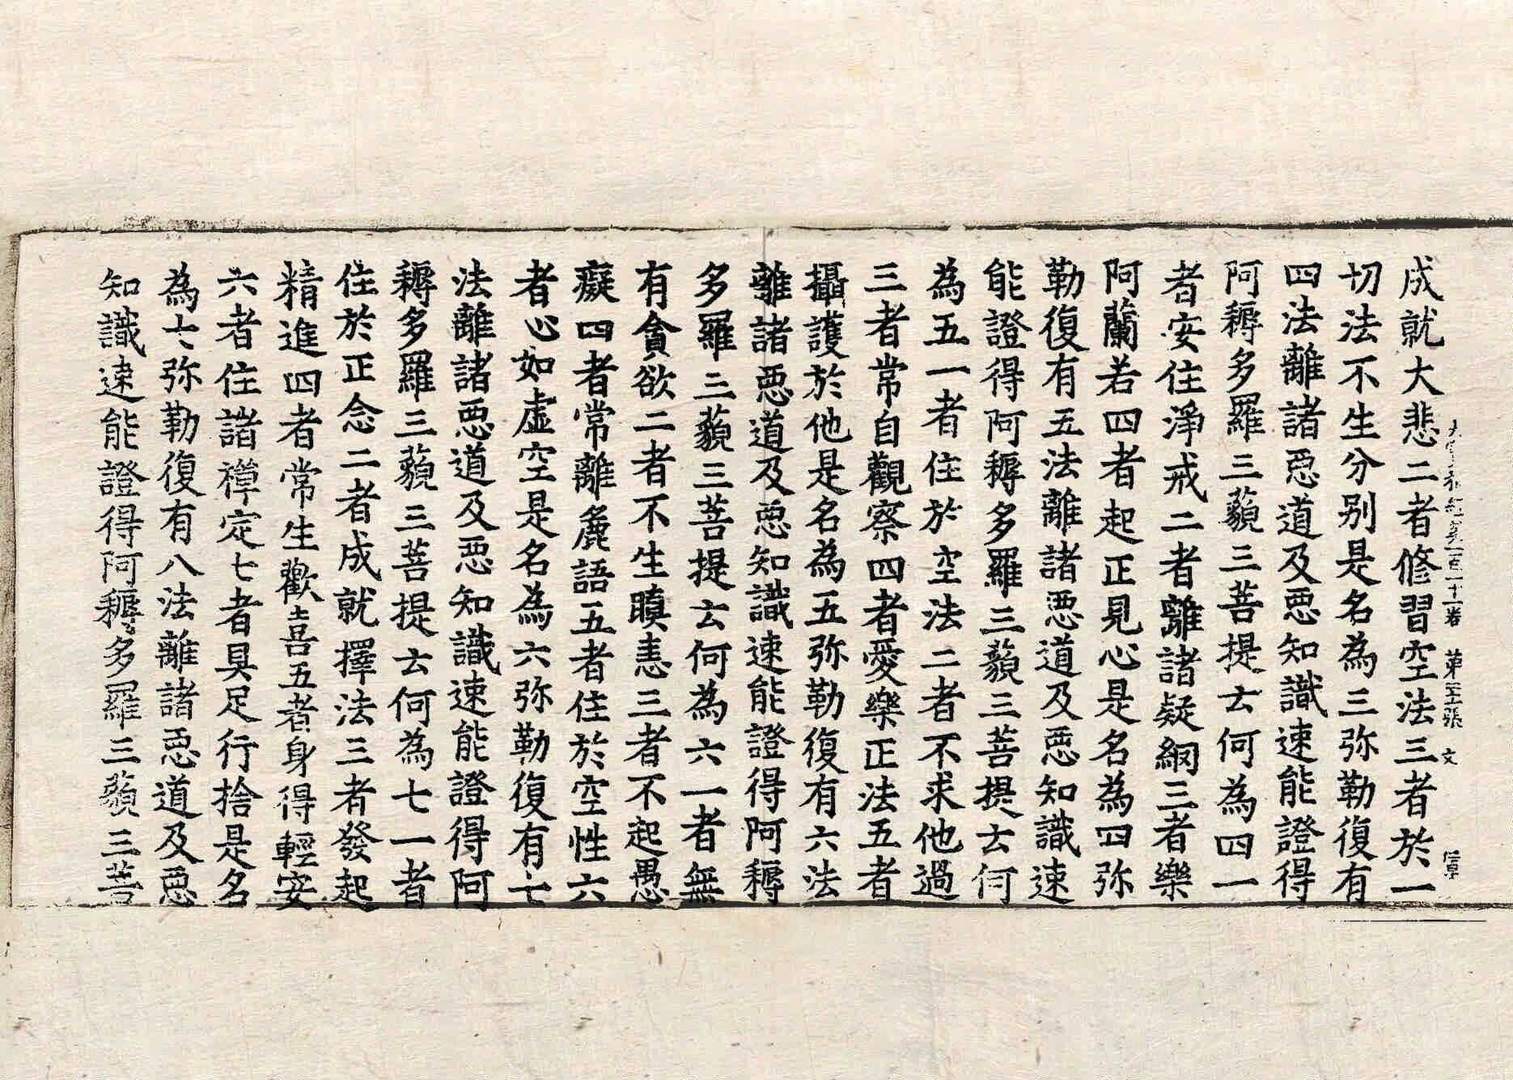 成就大悲二者修習空法三者於一
切法不生分别是名為三弥勒復有
四法離諸惡道及惡知識速能證得
阿耨多羅三藐三菩提云何為四一
者安住淨戒二者離諸疑網三者樂
阿蘭若四者起正見心是名為四弥
勒復有五法離諸惡道及惡知識速
能證得阿耨多羅三藐三菩提云何
為五一者住於空法二者不求他過
三者常自觀察四者愛樂正法五者
攝護於他是名為五弥勒復有六法
離諸惡道及惡知識速能證得阿耨
多羅三藐三菩提云何為六一者無
有貪欲二者不生瞋恚三者不起愚
癡四者常離麁語五者住於空性六
者心如虛空是名為六弥勒復有七
法離諸惡道及惡知識速能證得阿
耨多羅三藐三菩提云何為七一者
住於正念二者成就擇法三者發起
精進四者常生歡喜五者身得輕安
六者住諸禪定七者具足行捨是名
為七弥勒復有八法離諸惡道及惡
知識速能證得阿耨多羅三藐三菩